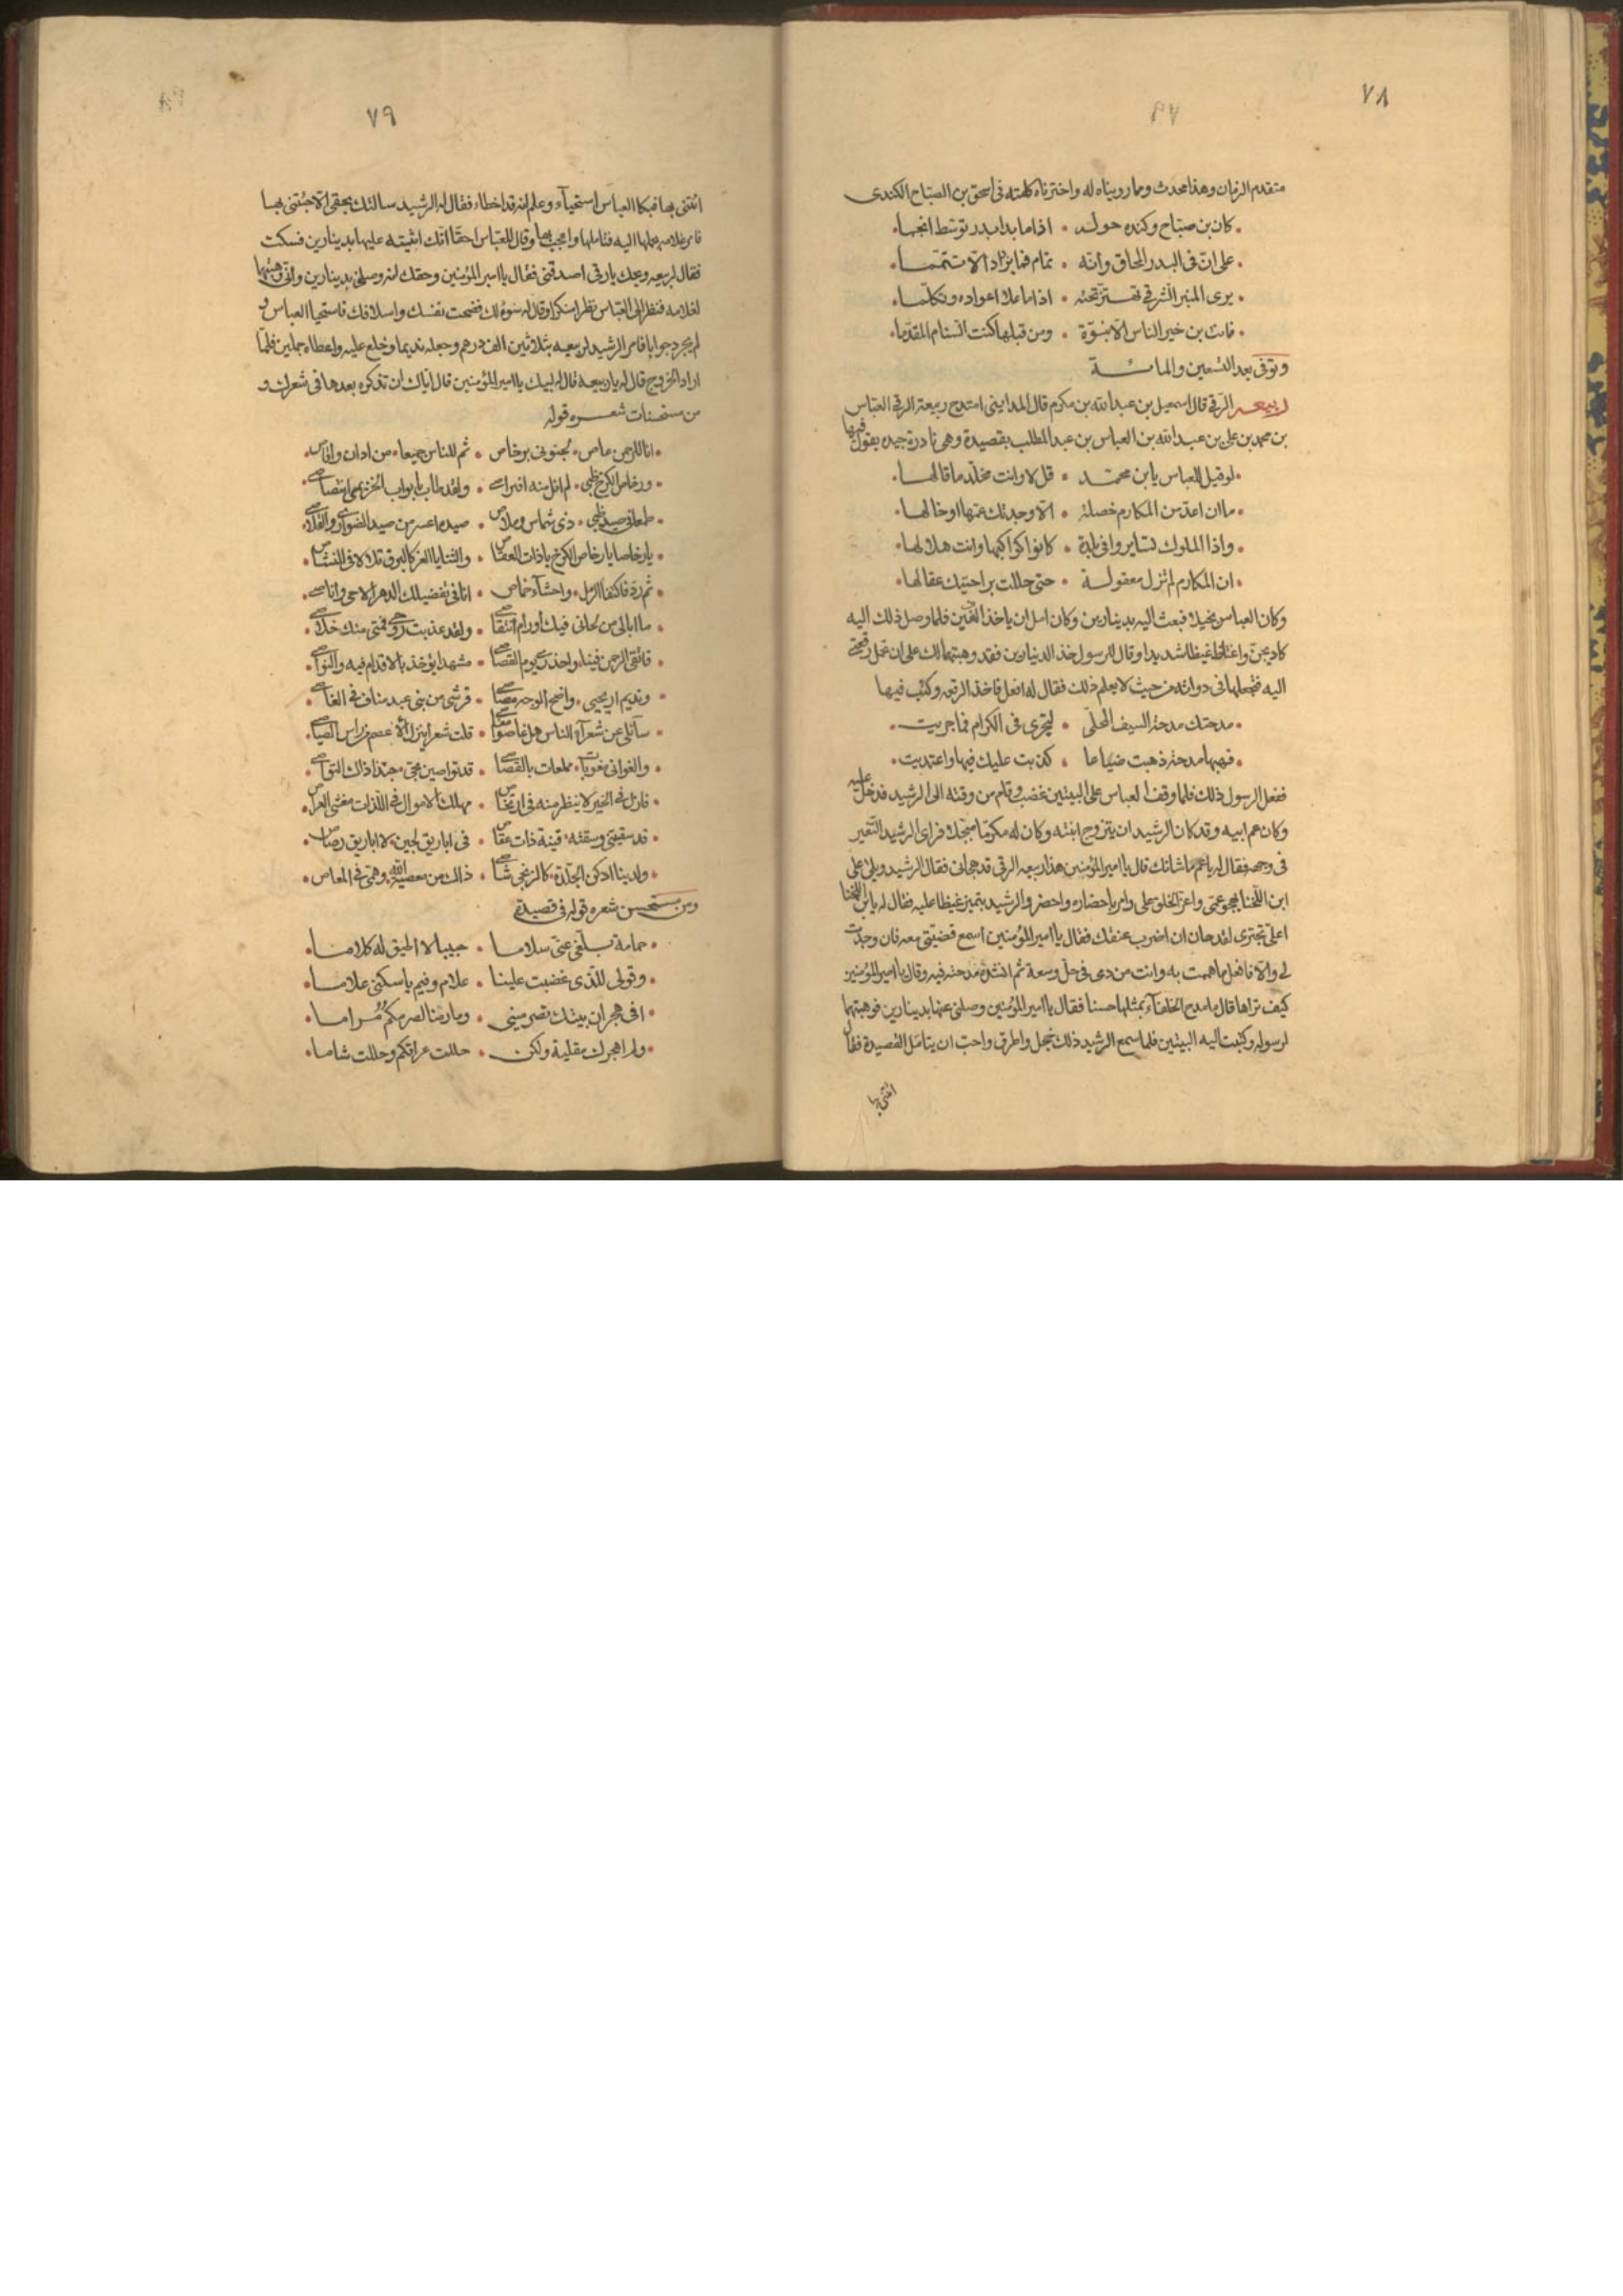 ٧٨
متقدم الزمان وهذا محدث ومما رويناه له واخترناه كلمته فى اسحق بن الصباح الكندى
كان بن صباح وكنده حوله • اذا ما بدا بدر توسّط انجما
على انّ فى البدر المحاق وانّه • تمام فما يزداد الّا تتمّما
يرى المنبر الشرقى تهتزّ تحته • اذا ما علا اعواده وتكلّما
فانت بن خير الناس الّا نبوّة • ومن قبلها كنت السنام المقدّما
وتوفى بعد التسعين والمائة
ربيعه الرّقى قال اسمعيل بن عبد الله بن مكرم قال المداينى امتدح ربيعة الرقى العباس
بن محمد بن على بن عبد الله بن العباس بن عبد المطلب بقصيدة وهى نادرة جيده يقول فيها
لو قيل للعباس يا بن محمّد • قل لا وانت مخلّد ما قالها
ما ان اعدّ من المكارم خصلة • الّا وجدتك عمّها او خالها
واذا الملوك تسايروا فى بلدة • كانوا كواكبها وانت هلالها
ان المكارم لم تزل معقولة • حتى حللت براحتيك عقالها
وكان العباس بخيلا فبعث اليه بدينارين وكان امل ان ياخذ الفين فلما وصل ذلك اليه
كاد يجنّ واغتاظ غيظا شديدا وقال للرسول خذ الدينارين فقد وهبتهما لك على ان تحمل رقعتى
اليه فتجعلها فى دواته من حيث لا يعلم ذلك فقال له افعل فاخذ الرقعه وكتب فيها
مدحتك مدحة السيف المحلّى • لتجرى فى الكرام فما جريت
فهبها مدحة ذهبت ضياعا • كذبت عليك فيها واعتديت
ففعل الرسول ذلك فلما وقف العباس على البيتين غضب وقام من وقته الى الرشيد فدخل عليه
وكان عم ابيه وقد كان الرشيد ان يتزوج ابنته وكان له مكرمّا مبجّلا فراى الرشيد التغير
فى وجهه فقال له يا عم ما شانك قال يا امير المؤمنين هذا ربيعه الرقى قد هجانى فقال الرشيد ويلى على
ابن اللخنا يهجو عمّى واعزّ الخلق على وامر باحضاره واحضر والرشيد يتميز غيظا عليه فقال له يا بن اللخنا
اعلىّ تجترى لقد حان ان اضرب عنقك فقال يا امير المؤمنين اسمع قضيّتى معه فان وجدت
لى والّا فافعل بما هممت به وانت من دمى فى حلّ وسعة ثم انشده مدحته فيه وقال يا امير المؤمنين
كيف تراها قال ما مدح الخلفآء بمثلها حسنا فقال يا امير المؤمنين وصلنى عنها بدينارين فوهبتهما
لرسوله وكتبت اليه البيتين فلما سمع الرشيد ذلك خجل واطرق واحبّ ان يتامّل القصيدة فقال
ائتنى بها
٧٩
ائتنى بها فبكا العباس استحيآء وعلم انه قد اخطاء فقال له الرشيد سالتك بحقى الّا جئتنى بها
فامر غلامه بحملها اليه فتاملها واعجب بها وقال للعبّاس احقّا انّك اثبته عليها بدينارين فسكت
فقال لربيعه ويحك يا رقى اصدقنى فقال يا امير المؤمنين وحقك انه وصلنى بدينارين وانى وهبتهما
لغلامه فنظر الى العبّاس نظرا منكرا وقال له سوءة لك فضحت نفسك واسلافك فاستحيا العباس و
لم يحر جوابا فامر الرشيد لربيعه بثلاثين الف درهم وجعله نديما وخلع عليه واعطاه حملين فلمّا
اراد الخروج قال له يا ربيعه قال له لبيك يا امير المؤمنين قال ايّاك ان تذكره بعدها فى شعرك و
من مستحسنات شعره قوله
انا للرحمن عاص • لجنونى برخاص • ثم للناس جميعا • من ادان واقاص
ورخاص الكرخ ظبى • لم انل منه افتراص • ولقد طاب بابواب
طمعانى صيد ظبى • ذى شماس وملاص • صيده اعسر من صيد الضوارى والقلاص
يا رخاصا يا رخاص الكرخ يا ذات العقاص • والثنايا الغر كالبروق تلالا فى النشاص
ثم ردفا كنقا الرمل • واحشآء خماص • انا فى تفضيلك الدهر الاحى واناصى
ما ابالى من لحانى فيك او رام انتقاصى • ولقد عذبت روحى فمتى منك خلاصى
فاتقى الرحمن فينا • واحذرى يوم القصاص • مشهدا يؤخذ بالاقدام فيه والنواصى
ونديم اريحيى • واضح الوجه مصاص • قرشى من بنى عبد مناف فى
سآئلى عن شعرآء الناس هل غاصوا مغاصى • قلت شعرا ينزل الاعصم من راس الصياصى
والغوانى مغويات • مملعات بالقصاص • قد تواصين بحبى • حبّذا ذاك التواصى
قد سقيتنى وسقته • قينة ذات عقاص • فى اباريق لجين • لا اباريق رصاص
ولدينا ادكن الجلدة • كالزنجى شاص • ذاك من معصية الله • وهمى فى المعاصى
ومن مستحسن شعره قوله فى قصيدة
حمامة بلّغى عنى سلاما • حبيبا لا اطيق له كلاما
وقولى للذى غضبت علينا • علام وفيم يا سكنى علاما
افى هجران بيتك تصرمينى • وما رمنا لصرمكم مُراما
ولم اهجرك مقلية ولكن • حللت عراقكم وحللت شاما